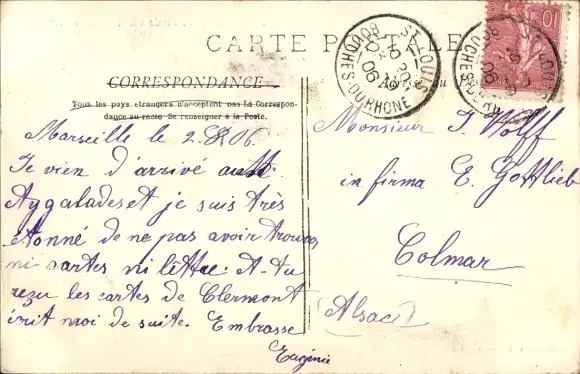 CARTE POSTALE
CORRESPONDANCE
Tous les pays étrangers n'acceptent pas la Correspon-
dance au recto Se renseigner à la Poste.
Marseille le 2. 06.
Je vien d'arrivé aux
Aygalades et je suis très
étonné de ne pas avoir trouvé
ni cartes ni lettre. A-tu
rezu les cartes de Clermont
écrit moi de suite. Embrasse
Eugénie
ST LOUIS
BOUCHES DU RHONE
06
Monsieur J. Wolff
in firma E. Gottlieb
Colmar
(Alsace)